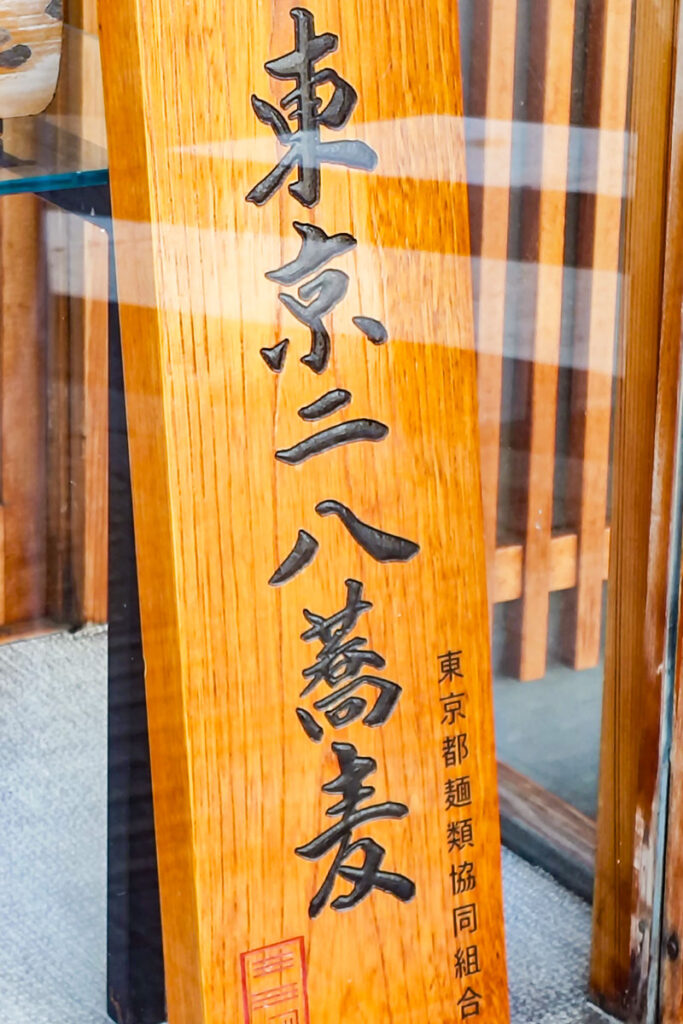 東京二八蕎麦
東京都麺類協同組合